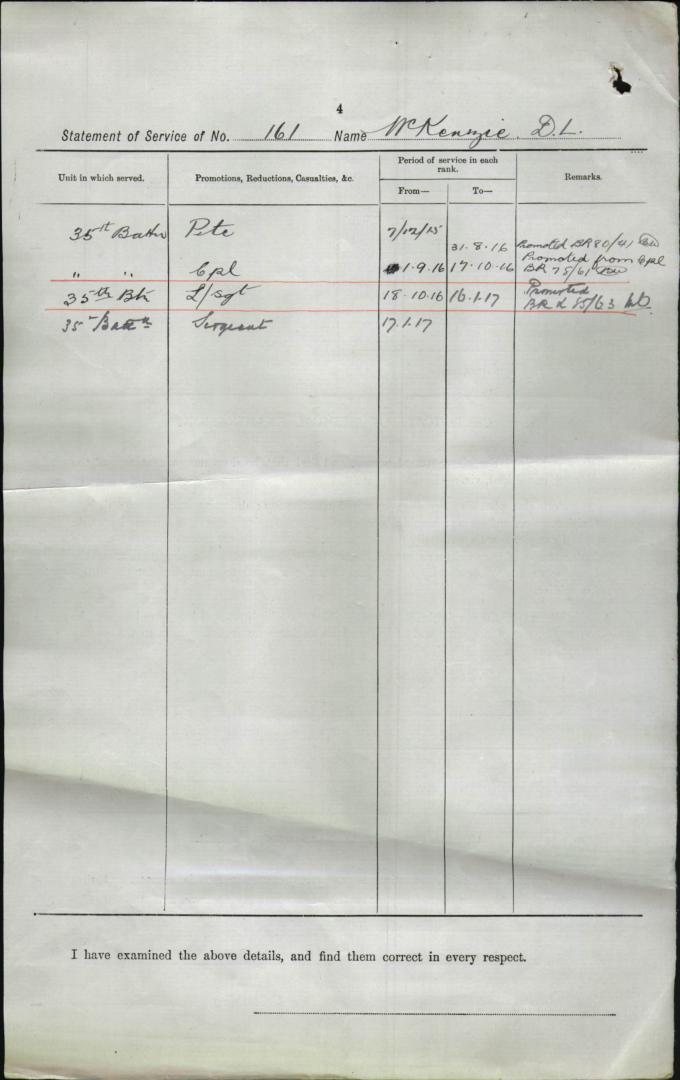 4
Statement of Service of No. 161 Name McKenzie. D.L.
Unit in which served. Promotions, Reductions, Casualties, &c. Period of service in each rank. Remarks.
From— To—
35th Battn Pvte 7/12/15 31.8.16 Promoted BR 80/41
" " Cpl 1.9.16 17.10.16 Promoted from Cpl BR 75/61
35th Bn L/Sgt 18.10.16 16.1.17 Promoted BR 85/63
35th Battn Sergeant 17.1.17
I have examined the above details, and find them correct in every respect.